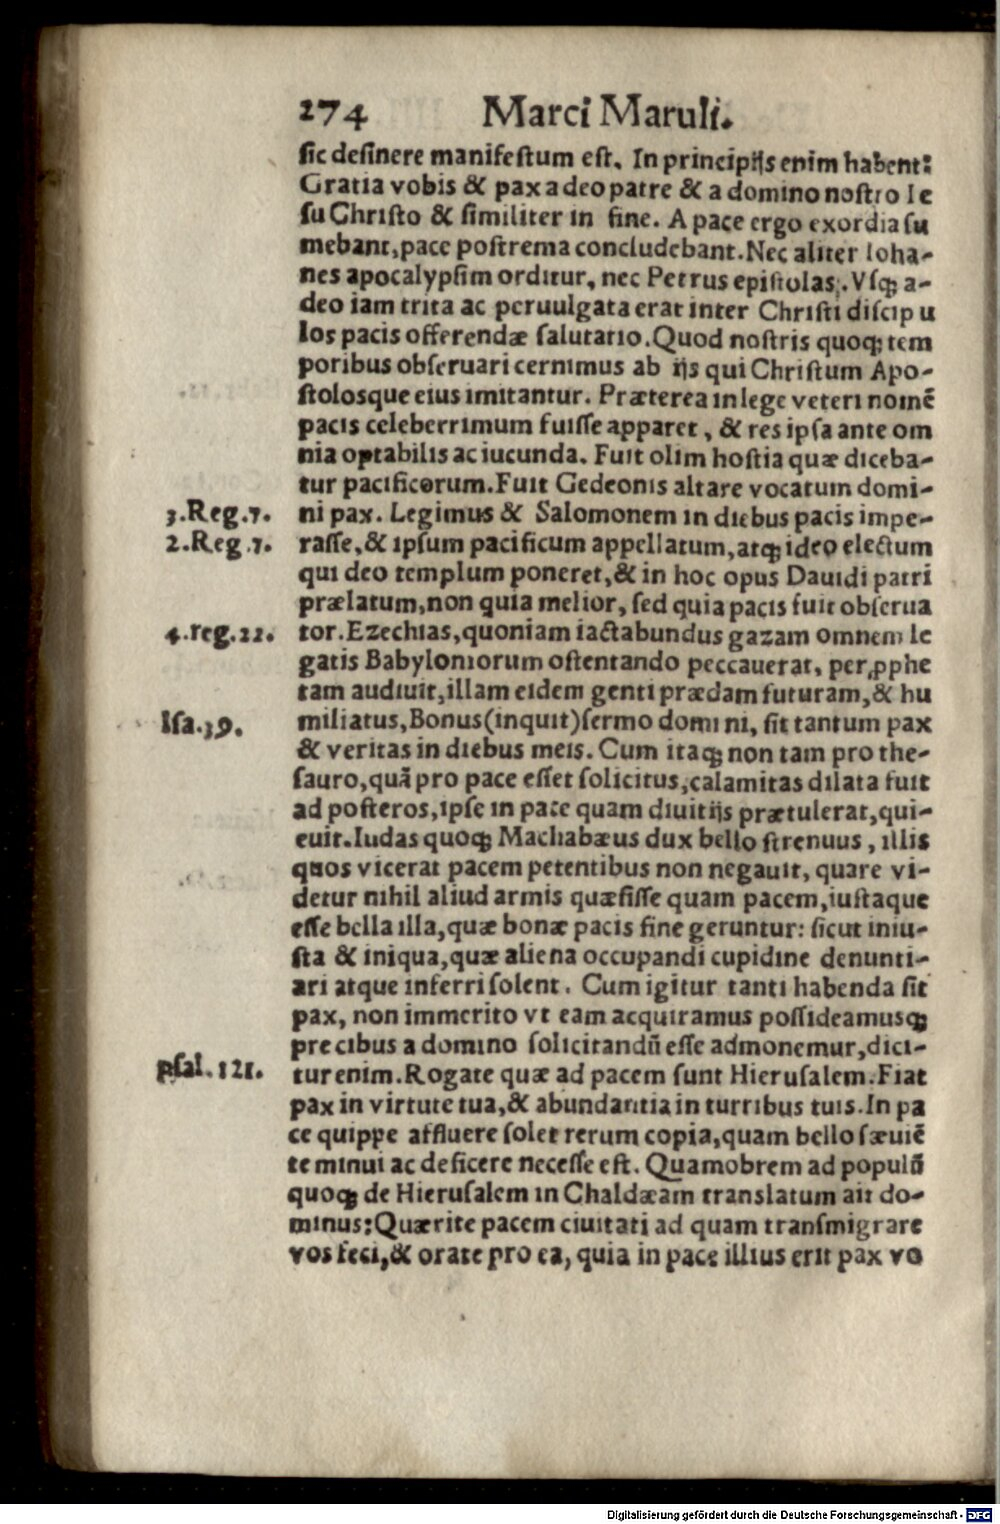 274 Marci Maruli.
sic desinere manifestum est. In principijs enim habent:
Gratia vobis & pax a deo patre & a domino nostro Ie
su Christo & similiter in fine. A pace ergo exordia su
mebant, pace postrema concludebant. Nec aliter Ioha-
nes apocalypsim orditur, nec Petrus epistolas. Vsqꝫ a-
deo iam trita ac peruulgata erat inter Christi discipu
los pacis offerendæ salutatio. Quod nostris quoqꝫ tem
poribus obseruari cernimus ab ijs qui Christum Apo-
stolosque eius imitantur. Præterea in lege veteri nomē
pacis celeberrimum fuisse apparet, & res ipsa ante om
nia optabilis ac iucunda. Fuit olim hostia quæ diceba-
tur pacificorum. Fuit Gedeonis altare vocatum domi-
3.Reg.7. ni pax. Legimus & Salomonem in diebus pacis impe-
2.Reg.7. rasse, & ipsum pacificum appellatum, atqꝫ ideo electum
qui deo templum poneret, & in hoc opus Dauidi patri
prælatum, non quia melior, sed quia pacis fuit obserua
4.reg.22. tor. Ezechias, quoniam iactabundus gazam omnem le
gatis Babyloniorum ostentando peccauerat, per ꝓphe
tam audiuit, illam eidem genti prædam futuram, & hu
Isa.39. miliatus, Bonus (inquit) sermo domini, sit tantum pax
& veritas in diebus meis. Cum itaqꝫ non tam pro the-
sauro, quā pro pace esset solicitus, calamitas dilata fuit
ad posteros, ipse in pace quam diuitijs prætulerat, qui-
euit. Iudas quoqꝫ Machabæus dux bello strenuus, illis
quos vicerat pacem petentibus non negauit, quare vi-
detur nihil aliud armis quæsisse quam pacem, iustaque
esse bella illa, quæ bonæ pacis fine geruntur: sicut iniu-
sta & iniqua, quæ aliena occupandi cupidine denunti-
ari atque inferri solent. Cum igitur tanti habenda sit
pax, non immerito vt eam acquiramus possideamusqꝫ
precibus a domino solicitandū esse admonemur, dici-
psal.121. tur enim. Rogate quæ ad pacem sunt Hierusalem. Fiat
pax in virtute tua, & abundantia in turribus tuis. In pa
ce quippe affluere solet rerum copia, quam bello sæuiē
te minui ac deficere necesse est. Quamobrem ad populū
quoqꝫ de Hierusalem in Chaldæam translatum ait do-
minus: Quærite pacem ciuitati ad quam transmigrare
vos feci, & orate pro ea, quia in pace illius erit pax vo
Digitalisierung gefördert durch die Deutsche Forschungsgemeinschaft - DFG